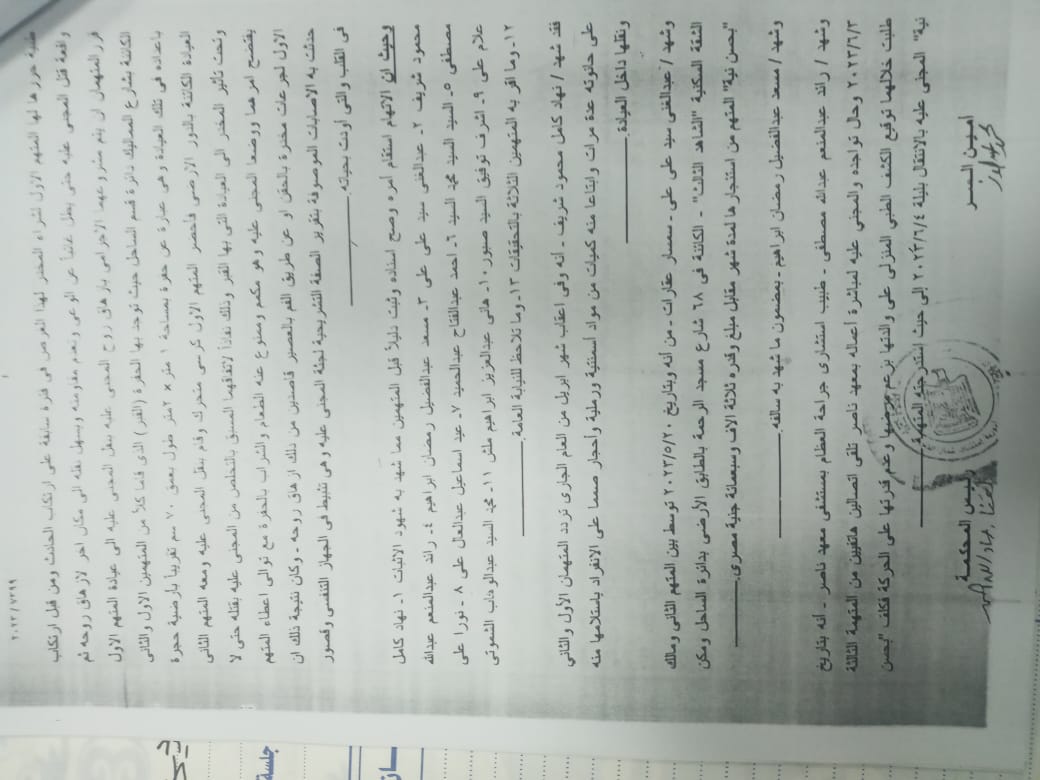 ٢٠٢٣/٧٢٩٩
طبية حررها لها المتهم الأول لشراء المخدر لهذا الغرض فى فترة سابقة على ارتكاب الحادث ومن قبل ارتكاب
واقعة قتل المجنى عليه حتى يظل غائباً عن الوعى وتعدم مقاومته ويسهل نقله الى مكان اخر لازهاق روحه ثم
قرر المتهمان ان يتم مشروعهما الاجرامى بازهاق روح المجنى عليه بنقل المجنى عليه الى عيادة المتهم الاول
الكائنة بشارع المماليك دائرة قسم الساحل حيث توجد بها الحفرة (القبر) الذى قاما كلاً من المتهمين الاول والثانى
باعداده فى تلك العيادة وهى عبارة عن حفرة بمساحة ١ متر x ٢ متر طول بعمق ٧٠ سم تقريباً بأرضية حجرة
العيادة الكائنة بالدور الأرضى فأحضر المتهم الاول كرسى متحرك وقام بنقل المجنى عليه ومعه المتهم الثانى
وتحت تأثير المخدر الى العيادة التى بها القبر وذلك نفاذاً لاتفاقهما المسبق بالتخلص من المجنى عليه بقتله حتى لا
يفتضح امرهما ووضعا المجنى عليه وهو مكمم وممنوع عنه الطعام والشراب بالحفرة مع توالى اعطاء المتهم
الاول لجرعات مخدرة بالحقن او عن طريق الفم بالعصير قاصدين من ذلك ازهاق روحه - وكان نتيجة ذلك ان
حدثت به الاصابات الموصوفة بتقرير الصفة التشريحية لجثة المجنى عليه وهى تثبيط فى الجهاز التنفسى وقصور
فى القلب والتى أودت بحياته.
وحيث ان الاتهام استقام أمره وصح اسناده وثبت دليلة قبل المتهمين مما شهد به شهود الاثبات ١- نهاد كامل
محمود شريف ٢- عبدالغنى سيد على على ٣- مسعد عبدالفضيل رمضان ابراهيم ٤- رائد عبدالمنعم عبدالله
مصطفى ٥- السيد السيد محمد السيد ٦- احمد عبدالفتاح عبدالحميد ٧- عيد اسماعيل عبدالعال على ٨- نورا على
علام على ٩- اشرف توفيق السيد صبور ١٠- هانى عبدالعزيز ابراهيم ملش ١١- محمد السيد عبدالوهاب الشموتى
١٢- وما اقر به المتهمين الثلاثة بالتحقيقات ١٣- وما تلاحظ للنيابة العامة.
فقد شهد / نهاد كامل محمود شريف - أنه وفى اعقاب شهر ابريل من العام الجارى تردد المتهمان الأول والثانى
على حانوته عدة مرات وابتاعا منه كميات من مواد أسمنتية ورملية وأحجار صمما على الإنفراد باستلامها منه
ونقلها داخل العيادة.
وشهد / عبدالغنى سيد على على - سمسار عقارات - من أنه وبتاريخ ٢٠٢٣/٥/٢٠ توسط بين المتهم الثانى ومالك
الشقة السكنية "الشاهد الثالث" - الكائنة فى ٦٨ شارع مسجد الرحمة بالطابق الأرضى بدائرة الساحل ومكن
"بحسن نية" المتهم من استئجارها لمدة شهر مقابل مبلغ وقدره ثلاثة الاف وسبعمائة جنية مصرى.
وشهد / مسعد عبدالفضيل رمضان ابراهيم - بمضمون ما شهد به سالفه.
وشهد / رائد عبدالمنعم عبدالله مصطفى - طبيب استشارى جراحة العظام بمستشفى معهد ناصر - أنه بتاريخ
٢٠٢٣/٦/٣ وحال تواجده والمجنى عليه لمباشرة أعماله بمعهد ناصر تلقى اتصالين هاتفيين من المتهمة الثالثة
طلبت خلالهما توقيع الكشف الطبى المنزلى على والدتها بزعم مرضها وعدم قدرتها على الحركة فكلف "بحسن
نية" المجنى عليه بالانتقال بليلة ٢٠٢٣/٦/٤ إلى حيث إستدرجته المتهمة.
أمين السر
رئيس المحكمة
جلسة